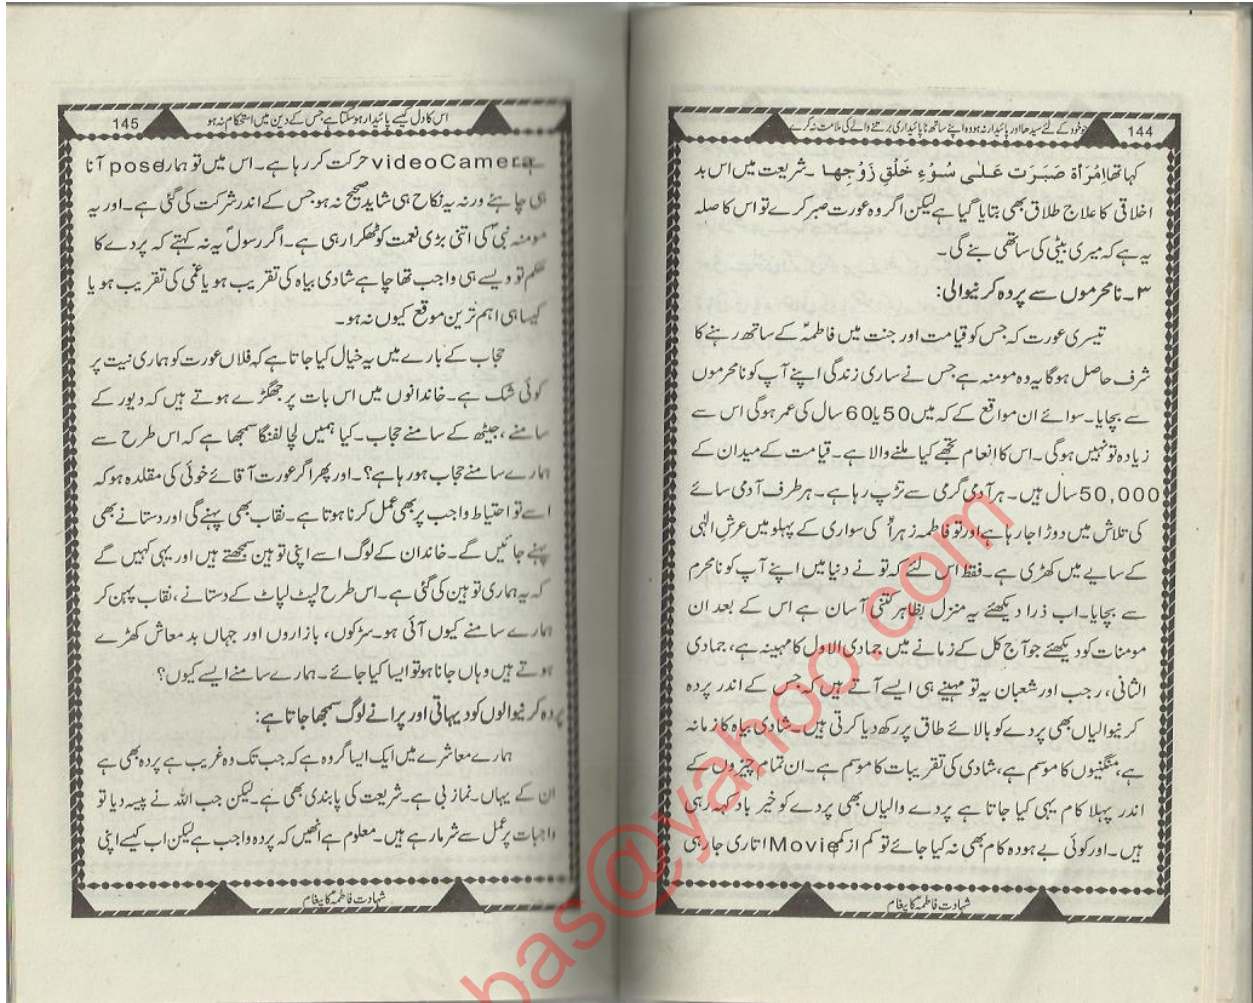 144
جو خود کے لئے سیدھا اور پائیدار نہ ہو وہ اپنے ساتھ ناپائیداری برتنے والے کی ملامت نہ کرے
کہا تھا اِمْرَأة صَبَرَت عَلٰی سُوْءِ خَلْقِ زَوْجِهَا ۔شریعت میں اس بد
اخلاقی کا علاج طلاق بھی بتایا گیا ہے لیکن اگر وہ عورت صبر کرے تو اس کا صلہ
یہ ہے کہ میری بیٹی کی ساتھی بنے گی۔
۳۔نامحرموں سے پردہ کرنیوالی:
تیسری عورت کہ جس کو قیامت اور جنت میں فاطمہؑ کے ساتھ رہنے کا
شرف حاصل ہوگا یہ وہ مومنہ ہے جس نے ساری زندگی اپنے آپ کو نامحرموں
سے بچایا۔سوائے ان مواقع کے کہ میں 50 یا 60 سال کی عمر ہوگی اس سے
زیادہ تو نہیں ہوگی۔اس کا انعام تجھے کیا ملنے والا ہے۔قیامت کے میدان کے
50,000 سال ہیں۔ہر آدمی گرمی سے تڑپ رہا ہے۔ہر طرف آدمی سائے
کی تلاش میں دوڑا جا رہا ہے اور تو فاطمہ زہراؑ کی سواری کے پہلو میں عرش الٰہی
کے سایے میں کھڑی ہے۔فقط اس لئے کہ تو نے دنیا میں اپنے آپ کو نامحرم
سے بچایا۔اب ذرا دیکھئے یہ منزل بظاہر کتنی آسان ہے اس کے بعد ان
مومنات کو دیکھئے جو آج کل کے زمانے میں جمادی الاول کا مہینہ ہے، جمادی
الثانی، رجب اور شعبان یہ تو مہینے ہی ایسے آتے ہیں کہ جس کے اندر پردہ
کرنیوالیاں بھی پردے کو بالائے طاق پر رکھ دیا کرتی ہیں۔شادی بیاہ کا زمانہ
ہے، منگنیوں کا موسم ہے، شادی کی تقریبات کا موسم ہے۔ان تمام چیزوں کے
اندر پہلا کام یہی کیا جاتا ہے پردے والیاں بھی پردے کو خیر باد کہہ رہی
ہیں۔اور کوئی بے ہودہ کام بھی نہ کیا جائے تو کم از کم Movie اتاری جا رہی
شہادت فاطمہؑ کا پیغام
145
اس کا دل کیسے پائیدار ہوسکتا ہے جس کے دین میں استحکام نہ ہو
ہے videoCamera حرکت کر رہا ہے۔اس میں تو ہمارا pose آنا
ہی چاہئے ورنہ یہ نکاح ہی شاید صحیح نہ ہو جس کے اندر شرکت کی گئی ہے۔اور یہ
مومنہ نبیؐ کی اتنی بڑی نعمت کو ٹھکرا رہی ہے۔اگر رسولؐ یہ نہ کہتے کہ پردے کا
حکم تو ویسے ہی واجب تھا چاہے شادی بیاہ کی تقریب ہو یا غمی کی تقریب ہو یا
کیسا ہی اہم ترین موقع کیوں نہ ہو۔
حجاب کے بارے میں یہ خیال کیا جاتا ہے کہ فلاں عورت کو ہماری نیت پر
کوئی شک ہے۔خاندانوں میں اس بات پر جھگڑے ہوتے ہیں کہ دیور کے
سامنے، جیٹھ کے سامنے حجاب۔کیا ہمیں لچا لفنگا سمجھا ہے کہ اس طرح سے
ہمارے سامنے حجاب ہو رہا ہے؟۔اور پھر اگر عورت آقائے خوئی کی مقلدہ ہو کہ
اسے تو احتیاط واجب پر بھی عمل کرنا ہوتا ہے۔نقاب بھی پہنے گی اور دستانے بھی
پہنے جائیں گے۔خاندان کے لوگ اسے اپنی توہین سمجھتے ہیں اور یہی کہیں گے
کہ یہ ہماری توہین کی گئی ہے۔اس طرح لپٹ لپاٹ کے دستانے، نقاب پہن کر
ہمارے سامنے کیوں آئی ہو۔سڑکوں، بازاروں اور جہاں بدمعاش کھڑے
ہوتے ہیں وہاں جانا ہو تو ایسا کیا جائے۔ہمارے سامنے ایسے کیوں؟
پردہ کرنیوالوں کو دیہاتی اور پرانے لوگ سمجھا جاتا ہے:
ہمارے معاشرے میں ایک ایسا گروہ ہے کہ جب تک وہ غریب ہے پردہ بھی ہے
ان کے یہاں۔نماز بی ہے۔شریعت کی پابندی بھی ہے۔لیکن جب اللہ نے پیسہ دیا تو
واجبات پر عمل سے شرما رہے ہیں۔معلوم ہے انھیں کہ پردہ واجب ہے لیکن اب کیسے اپنی
شہادت فاطمہؑ کا پیغام
bas@yahoo.com